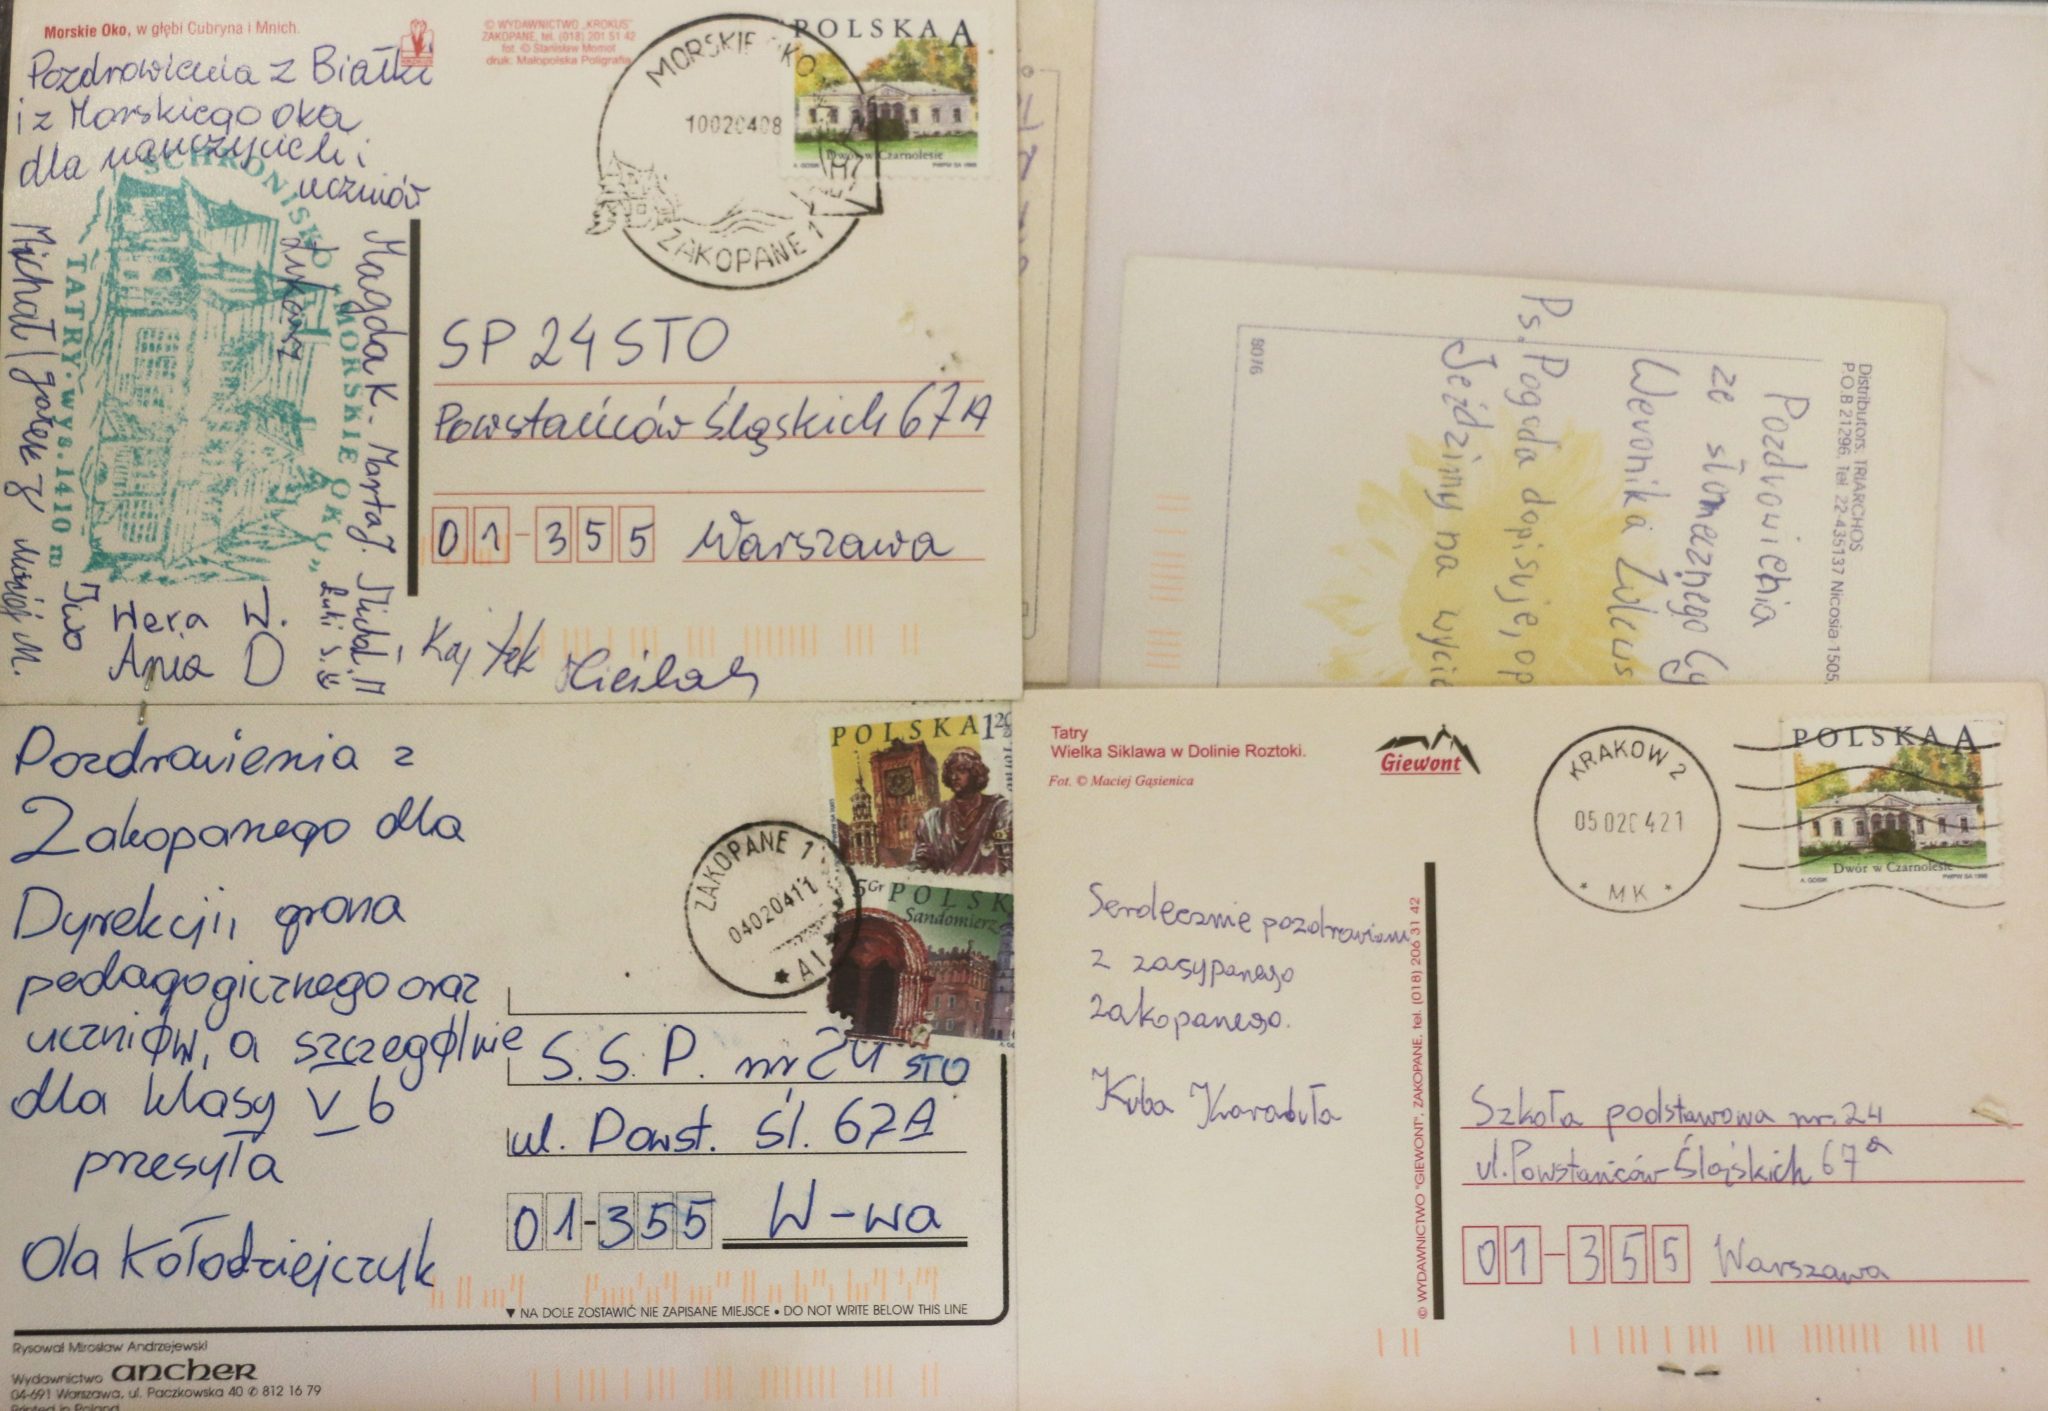 Morskie Oko, w głębi Cubryna i Mnich.
© WYDAWNICTWO „KROKUS”
ZAKOPANE, tel. (018) 201 51 42
fot. © Stanisław Momot
druk. Małopolska Poligrafia
Pozdrowienia z Białki
i z Morskiego oka
dla nauczycieli i
uczniów
SCHRONISKO „MORSKIE OKO”
TATRY·wys.1410 m
Magda K. Marta J. Michał. M
Łukasz
Luki S.
Michał
Maciej M.
Iwo
Wera W.
Ania D
Kajtek
MORSKIE OKO
10020408
ZAKOPANE 1
POLSKA A
Dwór w Czarnolesie
A. GOSIK PWPW SA 1998
SP 24 STO
Powstańców Śląskich 67A
01-355 Warszawa
Distributors: TRIARCHOS
P.O.B 21296, Tel. 22-435137 Nicosia 1505,
80/6
Pozdrowienia
ze słonecznego Cy
Weronika
Ps. Pogoda dopisuje, op
Jeździmy na wycie
Pozdrowienia z
Zakopanego dla
Dyrekcji, grona
pedagogicznego oraz
uczniów, a szczególnie
dla klasy V b
przesyła
Ola Kołodziejczyk
POLSKA 1,20
5Gr POLSK
Sandomierz
ZAKOPANE 1
04020411
* A1
S.S.P. nr 24 STO
ul. Powst. Śl. 67A
01-355 W-wa
▼ NA DOLE ZOSTAWIĆ NIE ZAPISANE MIEJSCE • DO NOT WRITE BELOW THIS LINE
Rysował Mirosław Andrzejewski
Wydawnictwo ancher
04-691 Warszawa, ul. Paczkowska 40 ✆ 812 16 79
Printed in Poland
Tatry
Wielka Siklawa w Dolinie Roztoki.
Fot. © Maciej Gąsienica
Giewont
KRAKOW 2
05020421
* MK *
POLSKA A
Dwór w Czarnolesie
A. GOSIK PWPW SA 1998
Serdecznie pozdrowienia
z zasypanego
zakopanego.
Kuba Karaduła
© WYDAWNICTWO "GIEWONT", ZAKOPANE, tel. (018) 206 31 42
Szkoła podstawowa nr. 24
ul. Powstańców Śląskich 67a
01-355 Warszawa